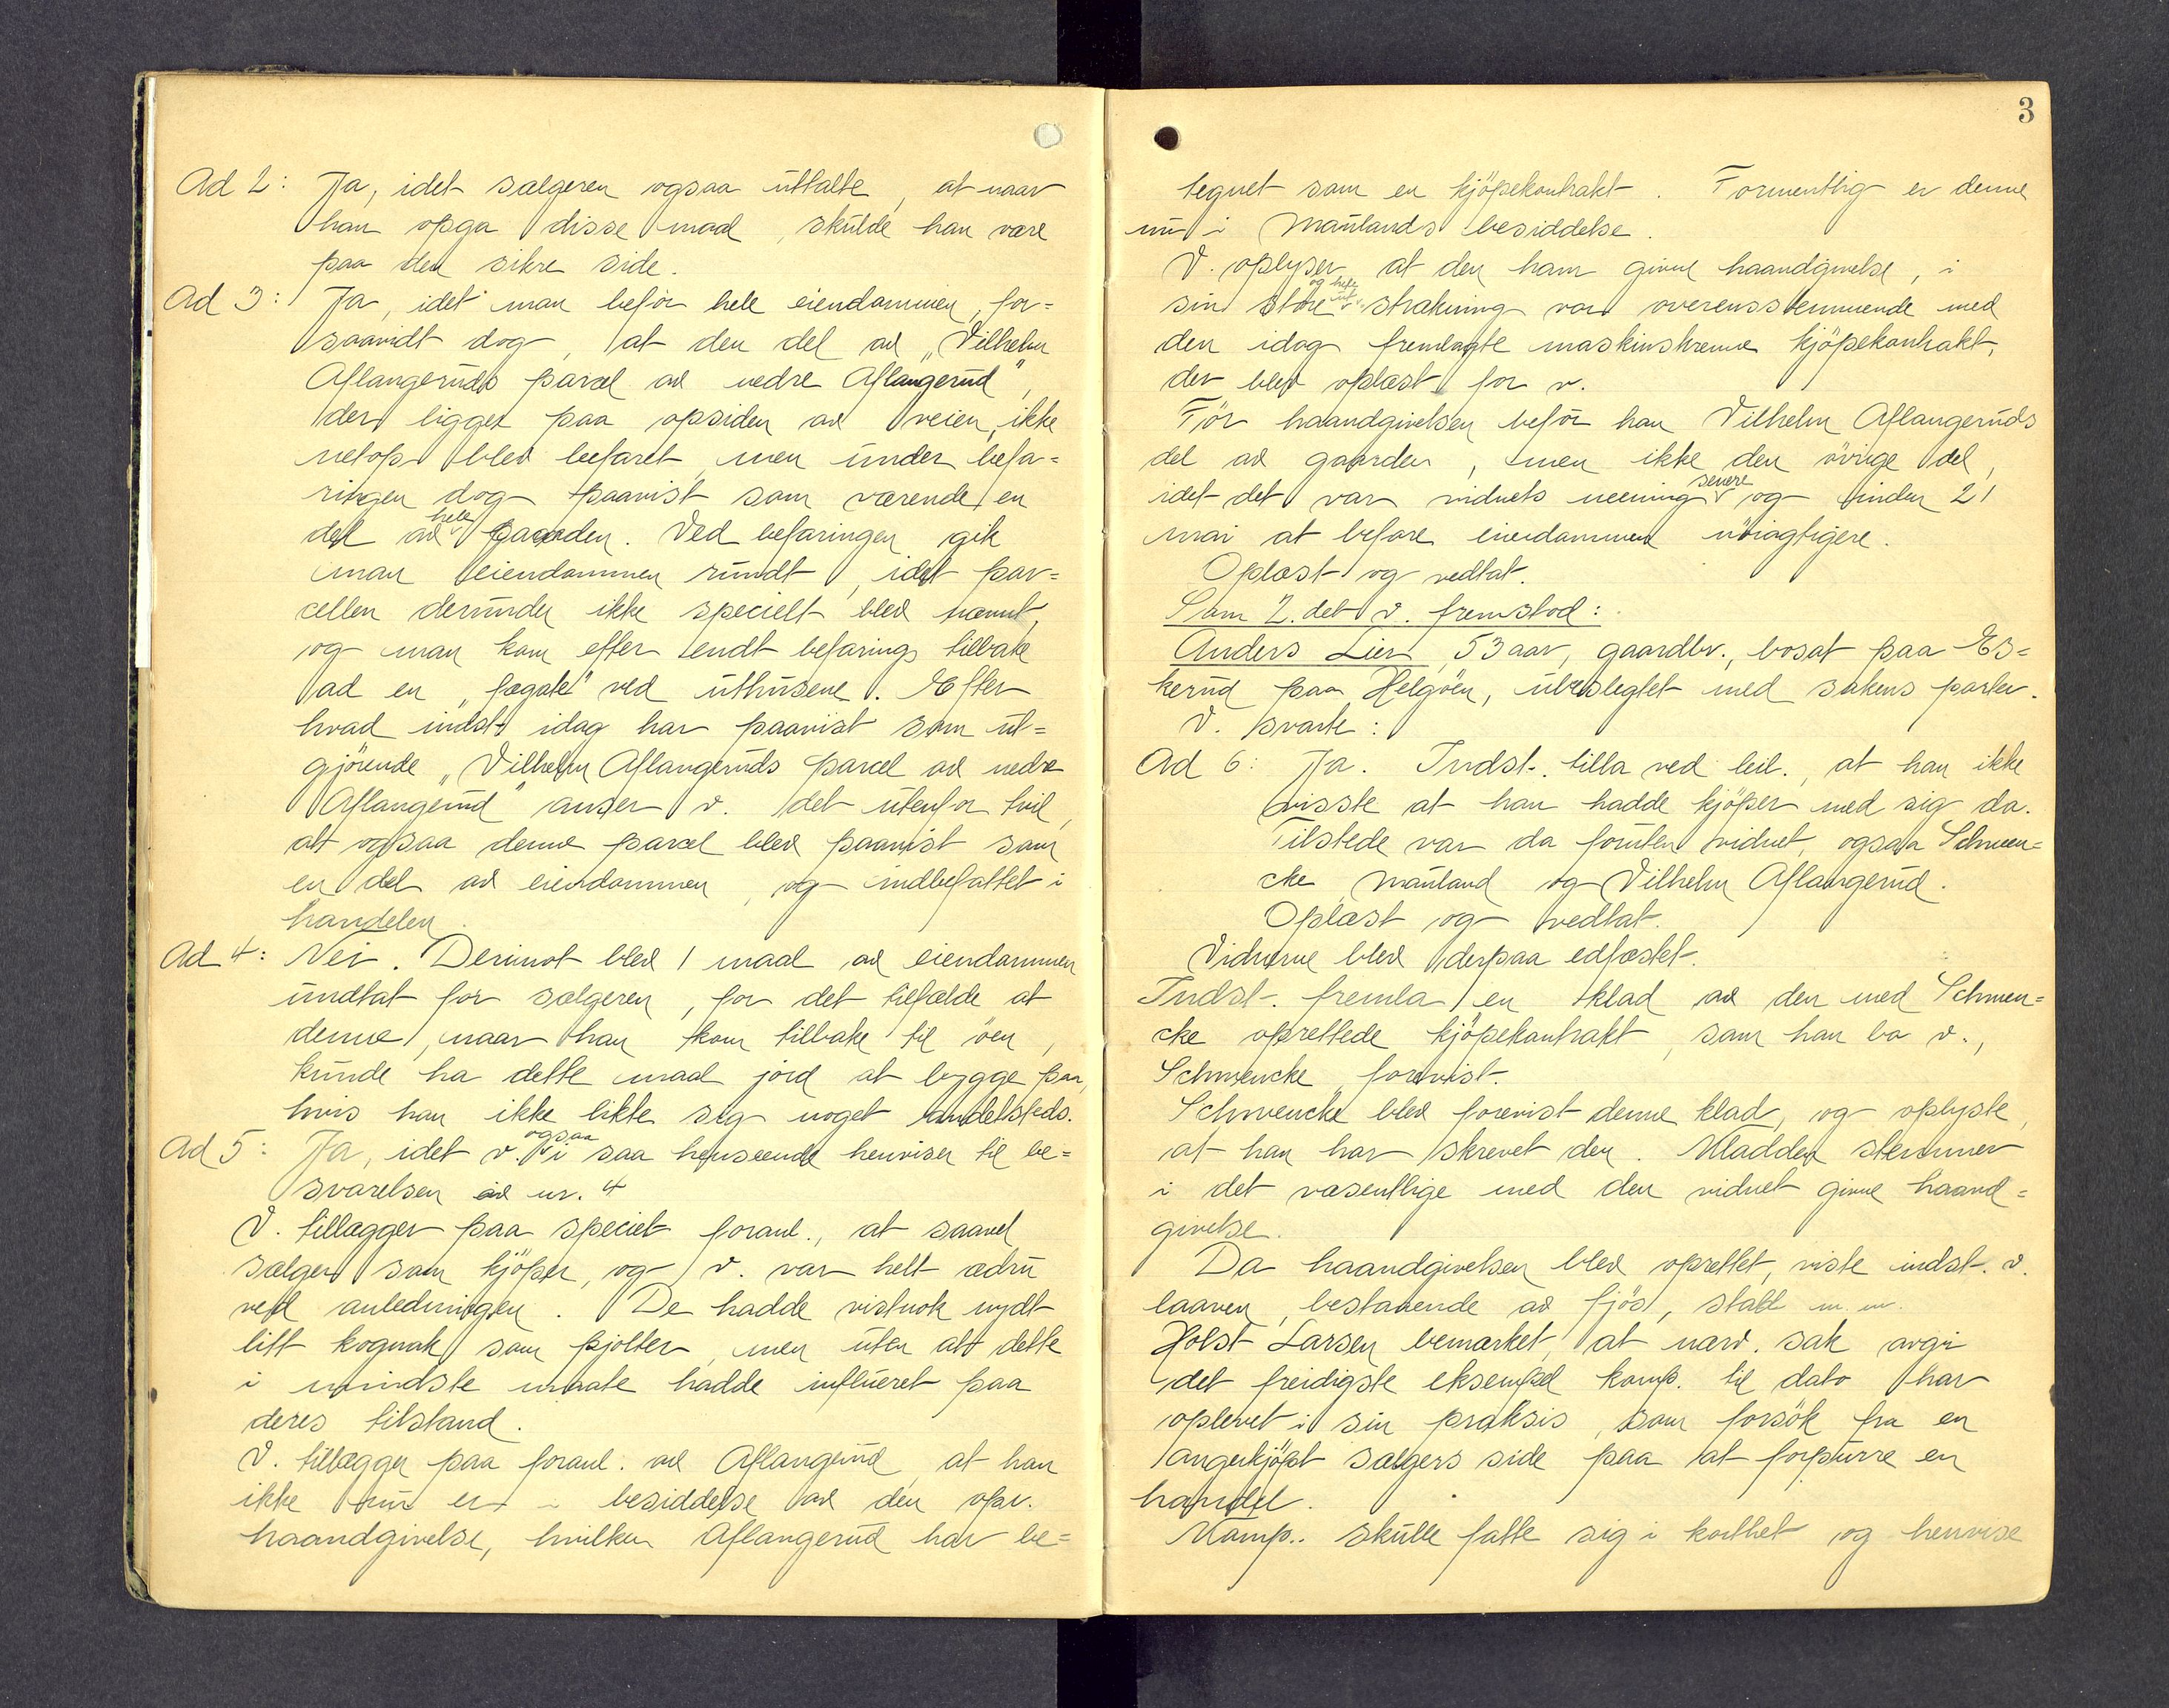 Ad 2: Ja, idet sælgeren ogsaa uttalte, at naar
han opga disse maal, skulde han være
paa den sikre side.
Ad 3: Ja, idet man befór hele eiendommen, for=
saavidt dog, at den del av "Vilhelm
Aflangeruds parcel av nedre Aflangerud",
der ligger paa opsiden av veien, ikke
netop blev befaret, men under befa=
ringen dog paavist som værende en
del av hele gaarden. Ved befaringen gik
man eiendommen rundt, idet par=
cellen derunder ikke specielt blev nævnt,
og man kom efter endt befaring tilbake
ad en "fægate" ved uthusene. Efter
hvad indst. idag har paavist som ut=
gjörende "Vilhelm Aflangeruds parcel av nedre
Aflangerud" anser v. det utenfor tvil,
at ogsaa denne parcel blev paavist som
en del av eiendommen, og indbefattet i
handelen.
Ad 4: Nei. Derimot blev 1 maal av eiendommen
undtat for sælgeren, for det tilfælde at
denne, naar han kom tilbake til öen,
kunde ha dette maal jord at bygge paa,
hvis han ikke likte sig noget andetsteds.
Ad 5: Ja, idet v. ogsaa i saa henseende henviser til be=
svarelsen av nr. 4
V. tillægger paa speciel foranl., at saavel
sælger som kjöper, og v. var helt ædru
ved anledningen. De hadde vistnok nydt
litt kognak som pjolter, men uten at dette
i mindste maate hadde influeret paa
deres tilstand.
V. tillægger paa foranl. av Aflangerud, at han
ikke nu er i besiddelse av den opr.
haandgivelse, hvilken Aflangerud har be=
3
tegnet som en kjöpekontrakt. Formentlig er denne
nu i Maulands besiddelse.
V. oplyser at den ham givne haandgivelse, i
sin store og hele utstrækning var overensstemmende med
den idag fremlagte maskinskrevne kjöpekontrakt,
der blev oplæst for v.
Før haandgivelsen befór han Vilhelm Aflangeruds
del av gaarden, men ikke den övrige del,
idet det var vidnets mening senere og inden 21
mai at befare eiendommen nöiagtigere.
Oplæst og vedtat.
Som 2. det v. fremstod:
Anders Lier, 53 aar, gaardbr., bosat paa Es=
kerud paa Helgöen, ubeslegtet med sakens parter.
V. svarte:
Ad 6: Ja. Indst. tilla ved leil., at han ikke
visste at han hadde kjöper med sig da.
Tilstede var da foruten vidnet, ogsaa Schwen=
cke, Mauland og Vilhelm Aflangerud.
Oplæst og vedtat.
Vidnerne blev derpaa edfæstet.
Indst. fremla en klad av den med Schwen=
cke oprettede kjöpekontrakt, som han ba v.,
Schwencke, forevist.
Schwencke blev forevist denne klad, og oplyste,
at han har skrevet den. Kladden stemmer
i det væsentlige med den vidnet givne haand=
givelse.
Da haandgivelsen blev oprettet, viste indst. v.
laaven, bestaaende av fjös, stald m.m.
Holst Larsen bemærket, at nærv. sak avgir
det freidigste eksempel komp. til dato har
oplevet i sin praksis, som forsök fra en
angerkjöpt sælgers side paa at forpurre en
handel.
Komp. skulle fatte sig i korthet og henvise